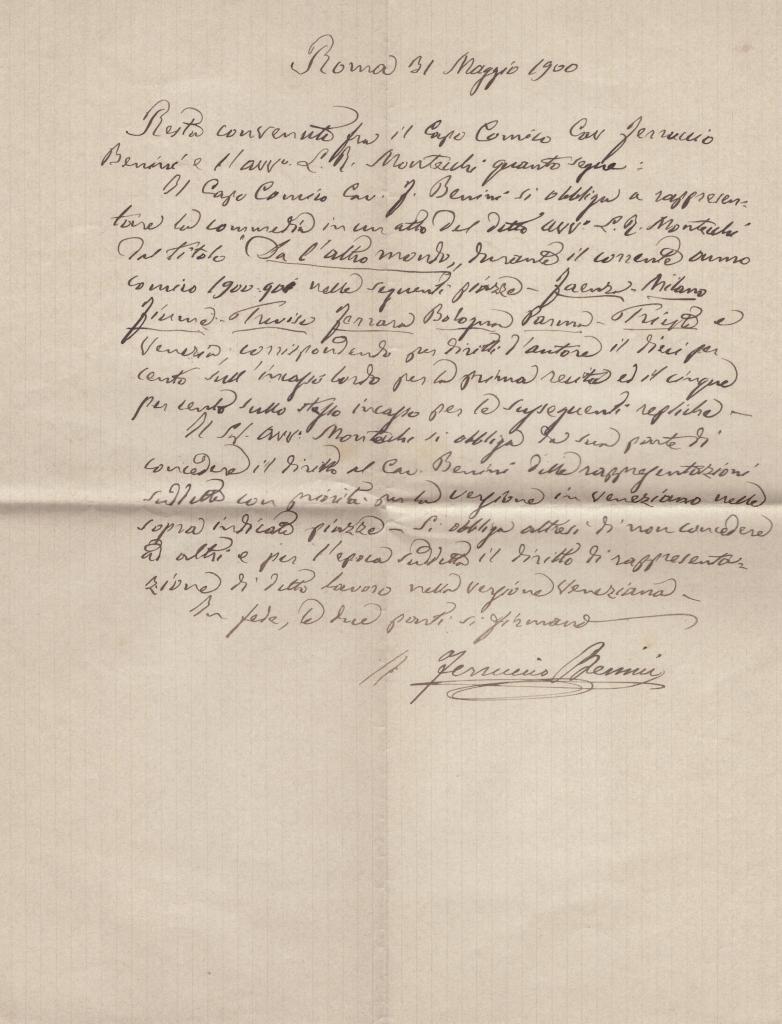 Roma 31 Maggio 1900
Resta convenuto fra il Capo Comico Cav Ferruccio
Benini e l'avvo. L. R. Montecchi quanto segue:
Il Capo Comico Cav. F. Benini si obbliga a rappresen-
tare la commedia in un atto del detto avvo L. R. Montecchi
dal titolo "Da l'altro mondo„ durante il corrente anno
comico 1900-901 nelle seguenti piazze - Faenza - Milano
Fiume - Treviso Ferrara Bologna Parma - Trieste e
Venezia, corrispondendo per diritti d'autore il dieci per
cento sull'incasso lordo per la prima recita ed il cinque
per cento sullo stesso incasso per le susseguenti repliche -
Il avvo Montecchi si obbliga da sua parte di
concedere il diritto al Cav. Benini delle rappresentazioni
suddette con priorità per la versione in veneziano nelle
sopra indicate piazze - Si obbliga altresì di non concedere
ad altri e per l'epoca suddetta il diritto di rappresenta-
zione di detto lavoro nella versione veneziana -
In fede, le due parti si firmano
Ferruccio Benini